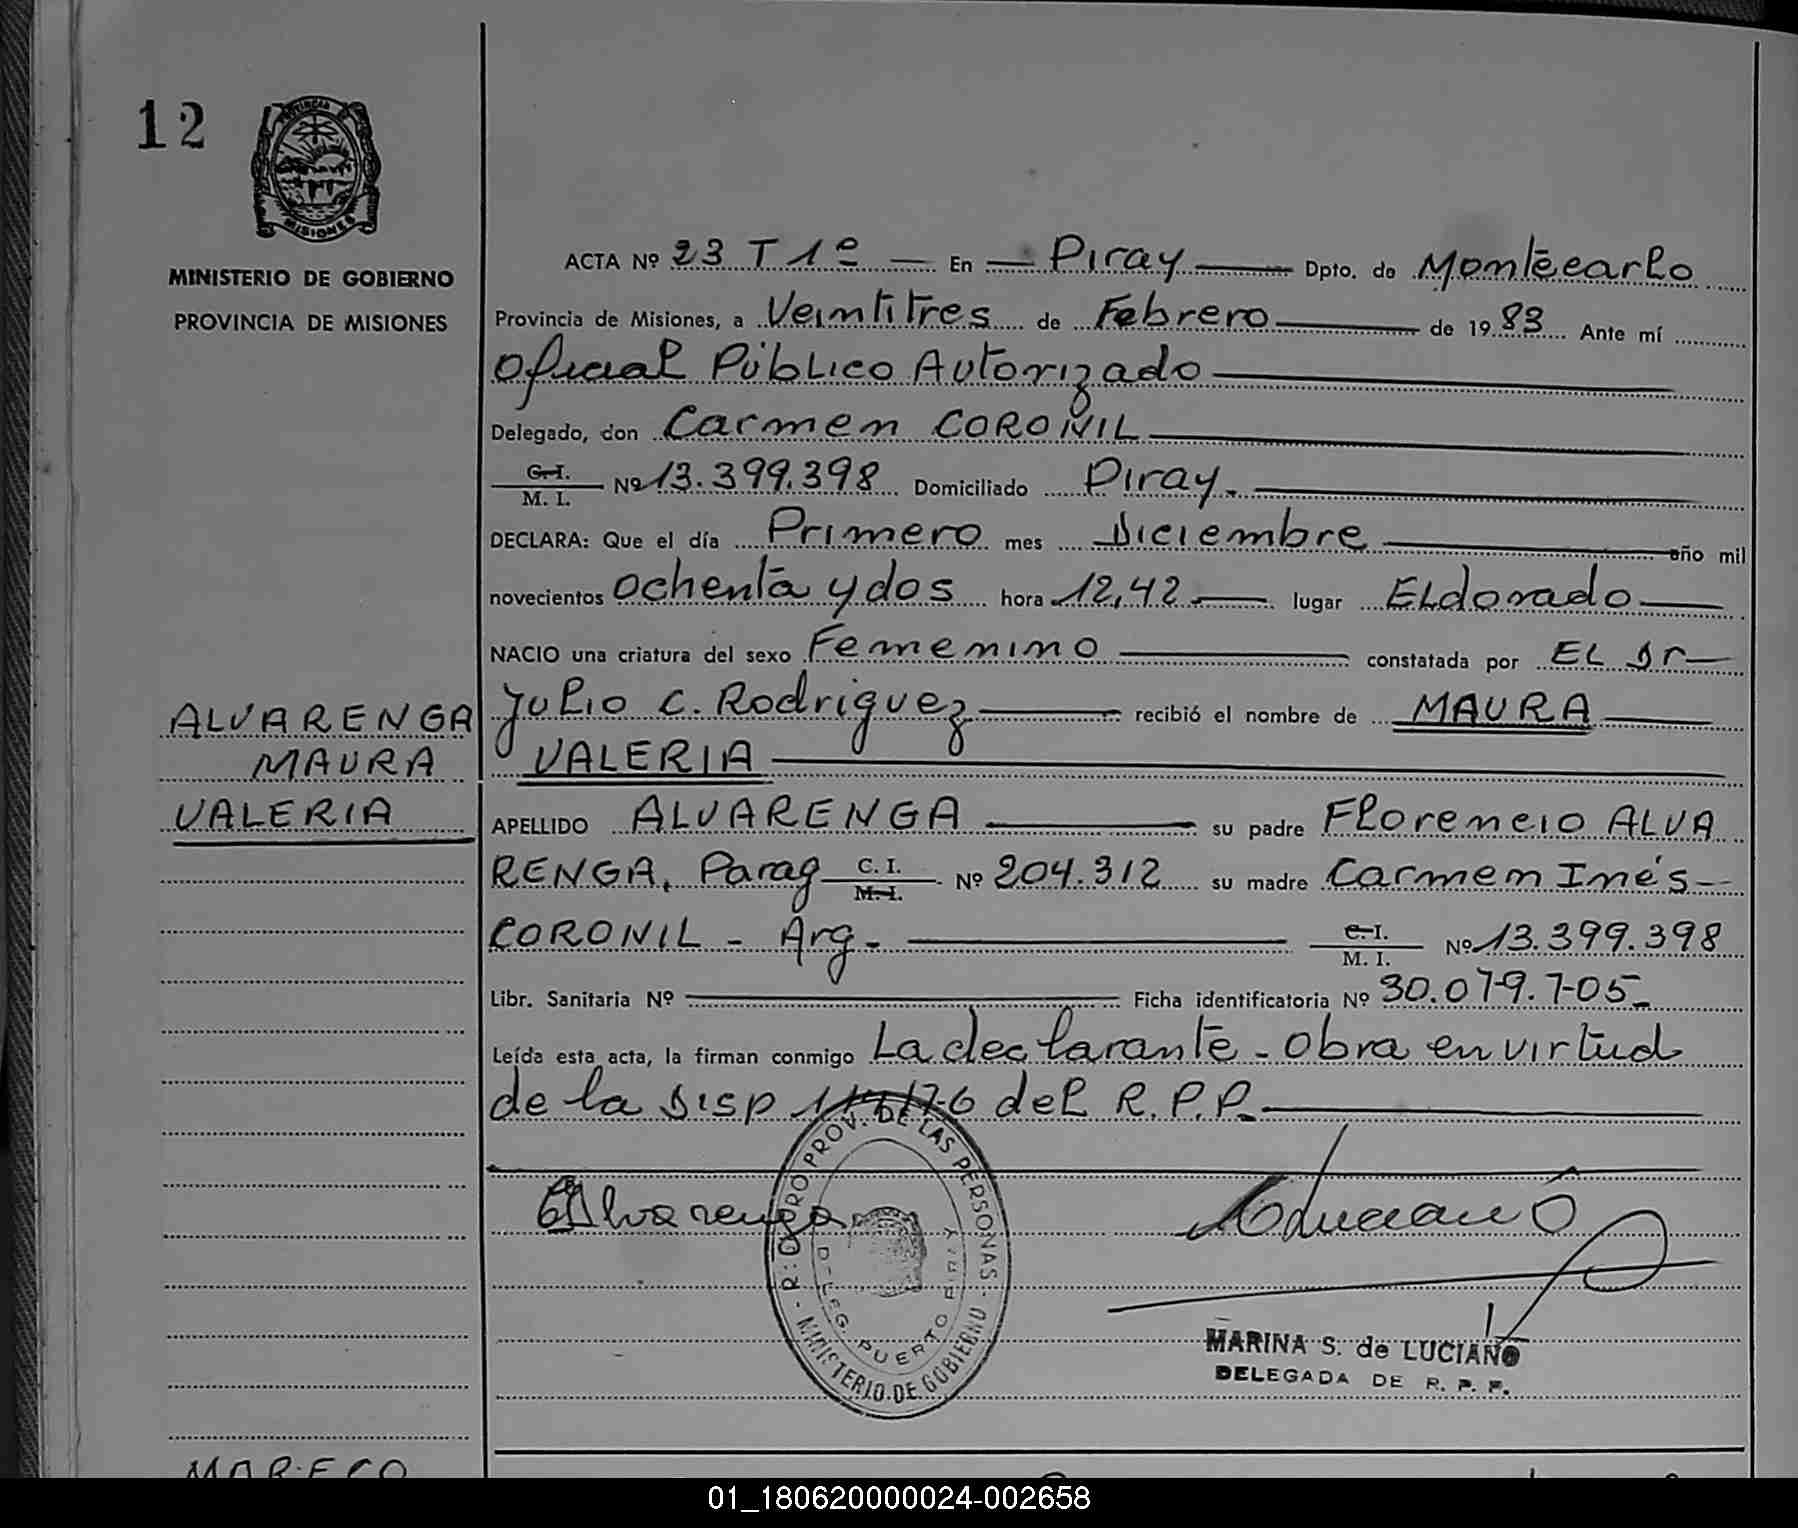 12
PROVINCIA DE
MISIONES
MINISTERIO DE GOBIERNO
PROVINCIA DE MISIONES
ACTA Nº 23 T 1º — En — Piray — Dpto. de Montecarlo
Provincia de Misiones, a Veintitres de Febrero — de 1983 Ante mí
Oficial Público Autorizado —
Delegado, don Carmen CORONIL —
C.I.
M. I. Nº 13.399.398 Domiciliado Piray. —
DECLARA: Que el día Primero mes Diciembre — año mil
novecientos ochenta y dos hora 12,42 — lugar ELdorado —
NACIO una criatura del sexo Femenino — constatada por EL Dr —
Julio C. Rodriguez — recibió el nombre de MAURA —
VALERIA —
ALVARENGA
MAURA
VALERIA
APELLIDO ALVARENGA — su padre Florencio ALVA
RENGA, Parag C. I.
M. I. Nº 204.312 su madre Carmen Inés —
CORONIL - Arg. — C.I.
M. I. Nº 13.399.398
Libr. Sanitaria Nº — Ficha identificatoria Nº 30.079.705.
Leída esta acta, la firman conmigo La declarante - Obra en virtud
de la Disp 117/76 del R.P.P. —
Alvarenga
R: O PROV. DE LAS PERSONAS
MINISTERIO DE GOBIERNO
DELEG. PUERTO PIRAY
MARINA S. de LUCIANO
DELEGADA DE R. P. P.
MARECO
01_180620000024-002658